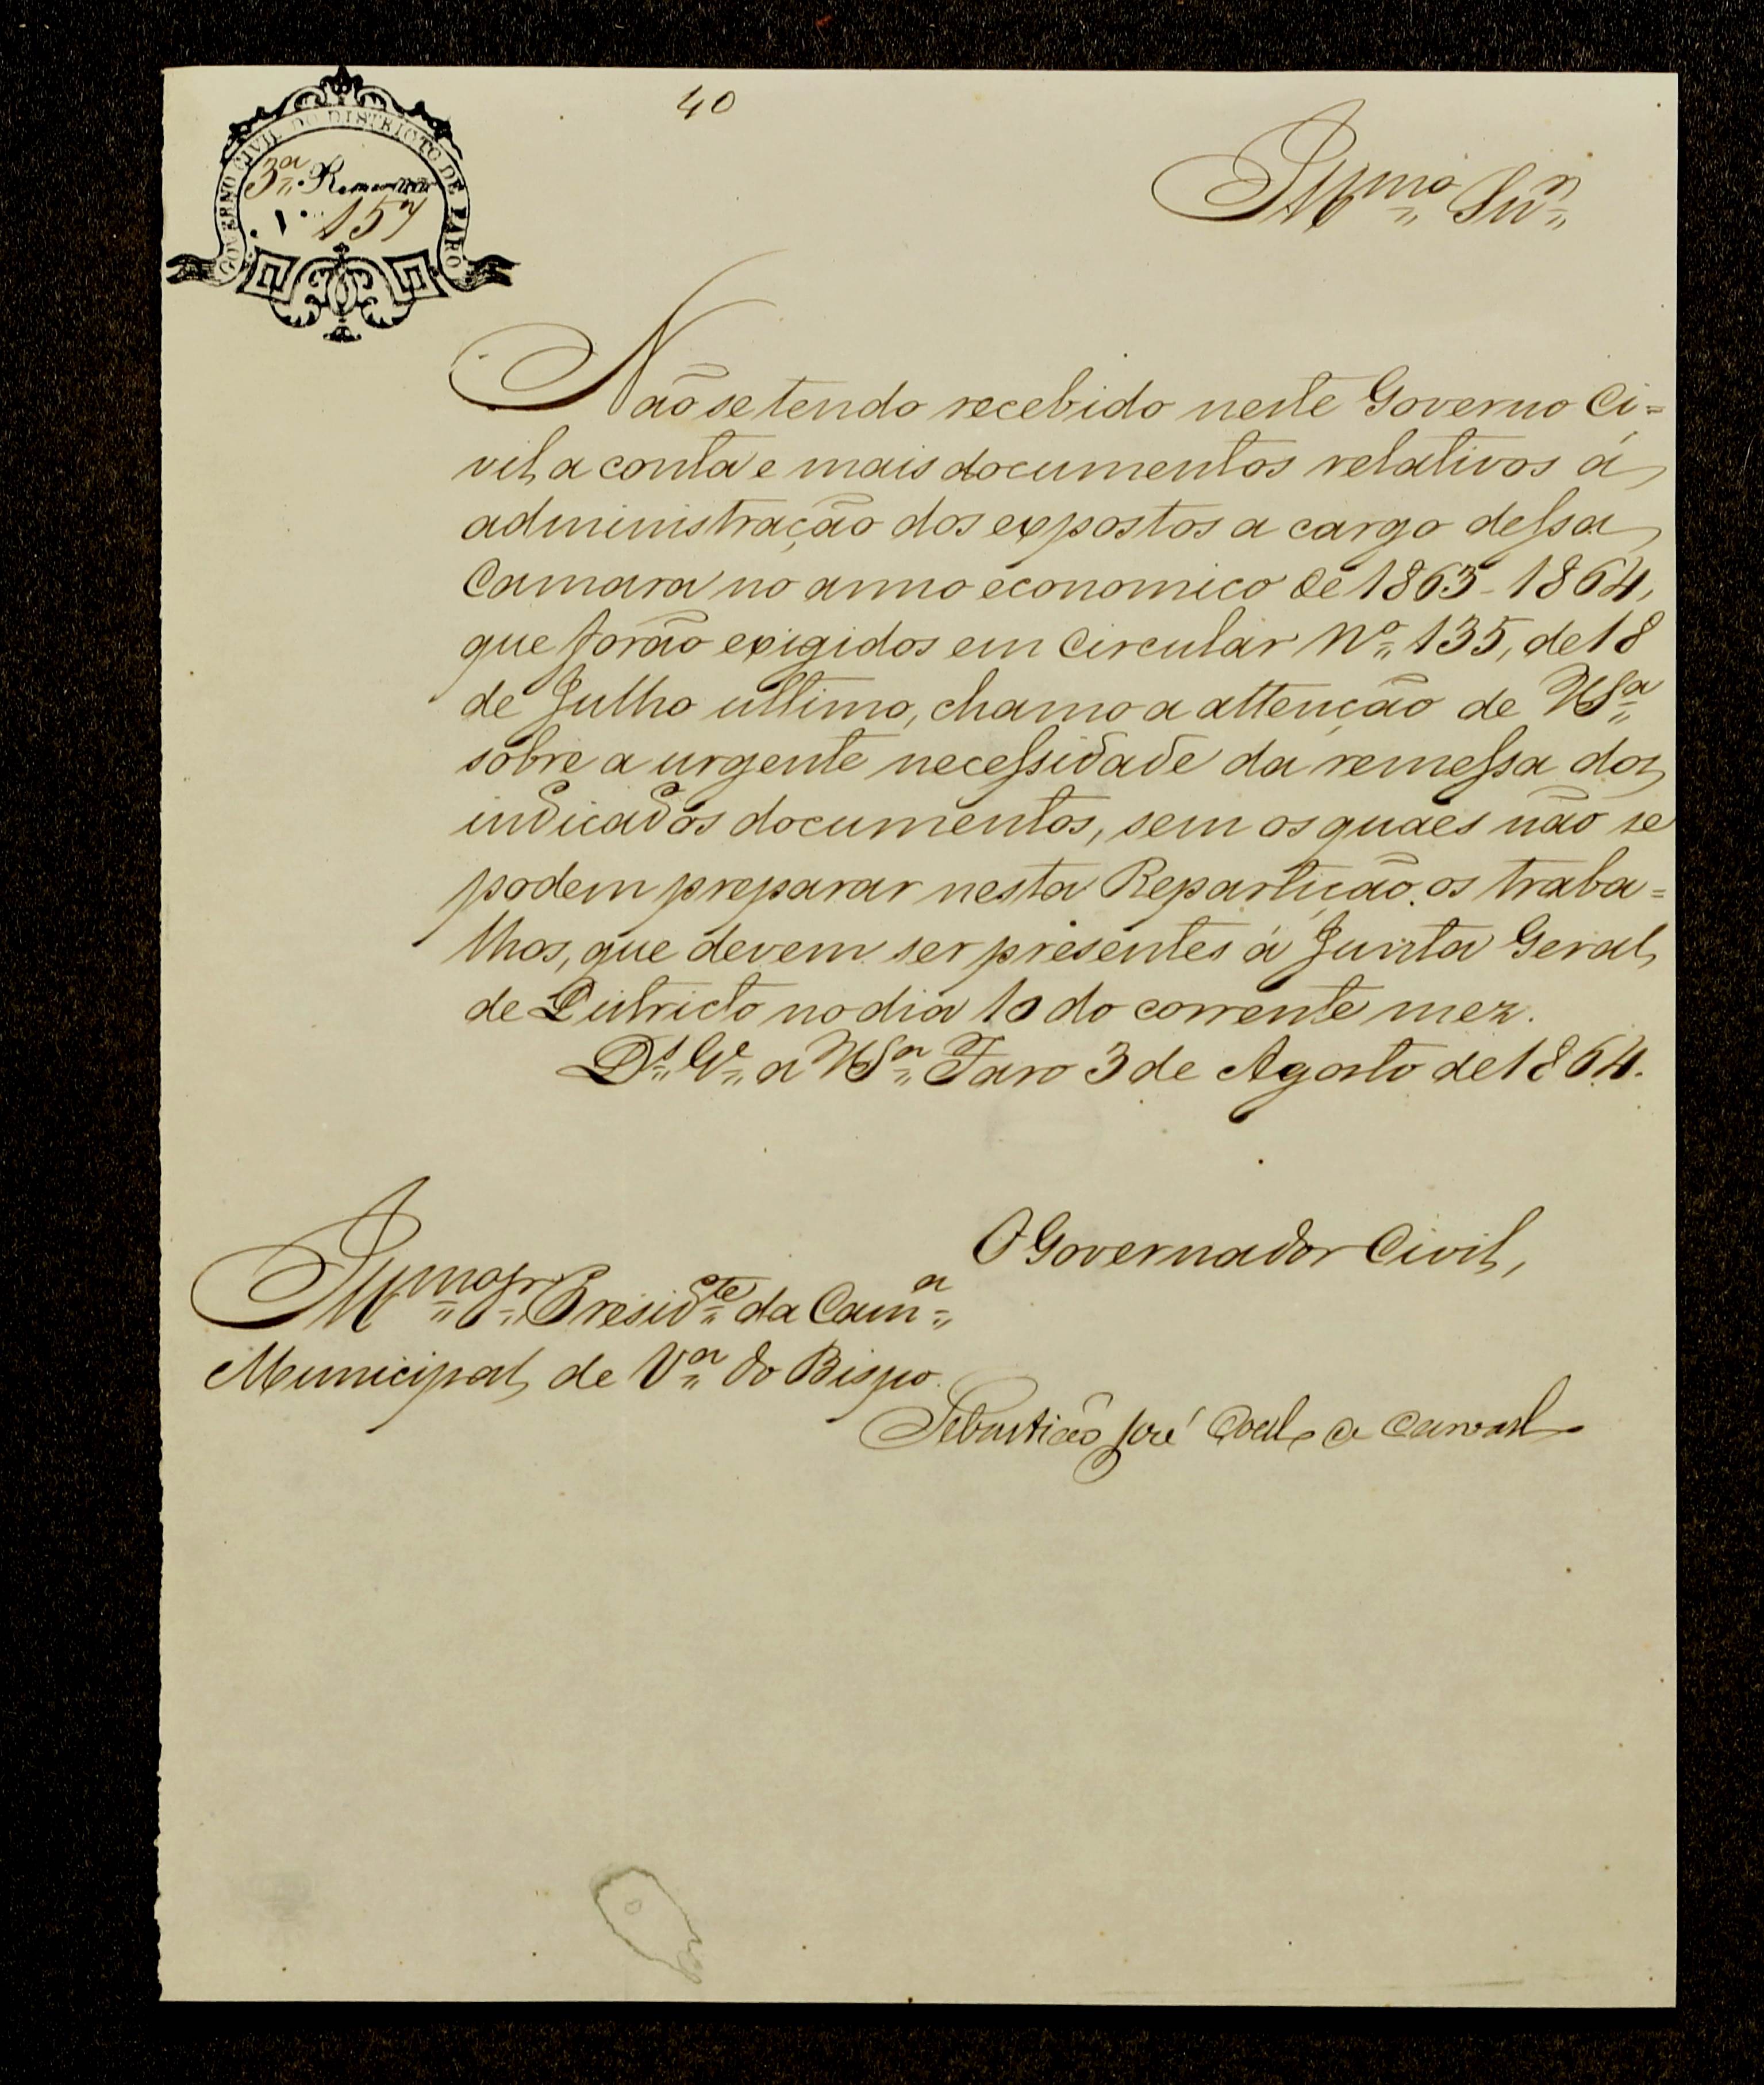 40
GOVERNO CIVIL DO DISTRICTO DE FARO
3ª
N.º 157
Illmo Snr
Não se tendo recebido neste Governo Ci=
vil a conta e mais documentos relativos á
administração dos expostos a cargo dessa
Camara no anno economico de 1863-1864,
que forão exigidos em Circular Nº 135, de 18
de Julho ultimo, chamo a attenção de VSª
sobre a urgente necessidade da remessa dos
indicados documentos, sem os quaes não se
podem preparar nesta Repartição os traba=
lhos, que devem ser presentes á Junta Geral
de Districto no dia 10 do corrente mez.
Ds. Ge. a VSª Faro 3 de Agosto de 1864.
O Governador Civil,
Illmo Sr Presidte da Camª
Municipal de Vª do Bispo.
Sebastião José Coelho de Carvalho